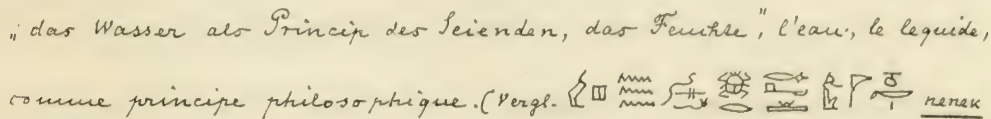 „das Wasser als Princip des Seienden, das Feuchte", l'eau, le lequide,
comme principe philosophique. (Vergl. nenek